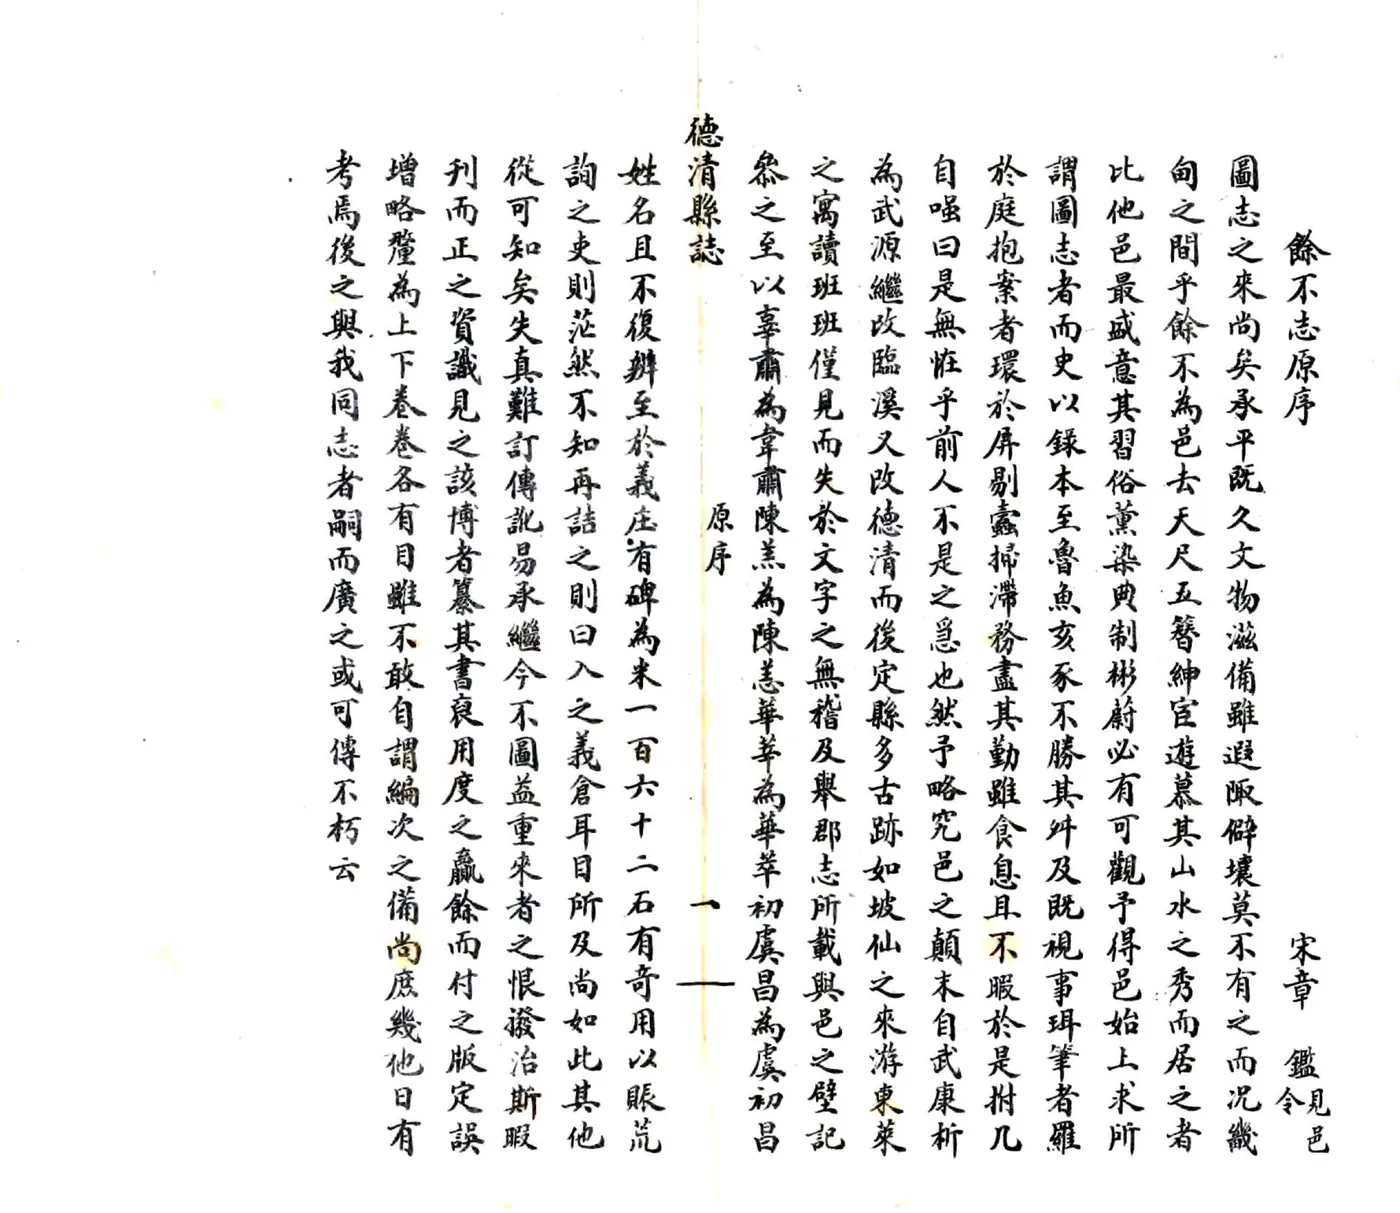 餘不志原序
宋章 鑑見邑令
圖志之來尚矣承平既久文物滋備雖遐陬僻壤莫不有之而況畿
甸之間乎餘不為邑去天尺五簪紳宦遊慕其山水之秀而居之者
比他邑最盛意其習俗薰染典制彬蔚必有可觀予得邑始上求所
謂圖志者而史以錄本至魯魚亥豕不勝其舛及既視事珥筆者羅
於庭抱案者環於屏剔蠹掃滯務盡其勤雖食息且不暇於是拊几
自嗤曰是無恠乎前人不是之急也然予略究邑之顛末自武康析
為武源繼改臨溪又改德清而後定縣多古跡如坡仙之來游東萊
之寓讀班班僅見而失於文字之無稽及舉郡志所載與邑之壁記
叅之至以辜肅為韋肅陳羔為陳恙華苹為華萃初虞昌為虞初昌
德清縣誌
原序
一
姓名且不復辨至於義庄有碑為米一百六十二石有奇用以賑荒
詢之吏則茫然不知再詰之則曰入之義倉耳目所及尚如此其他
從可知矣失真難訂傳訛易承繼今不圖益重來者之恨撥治斯暇
刊而正之資識見之該博者纂其書裒用度之贏餘而付之版定誤
增略釐為上下卷卷各有目雖不敢自謂編次之備尚庶幾他日有
考焉後之與我同志者嗣而廣之或可傳不朽云